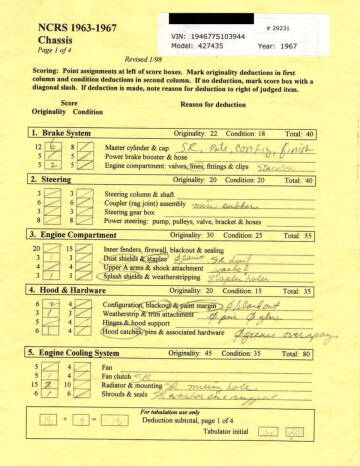 NCRS 1963-1967
Chassis
Page 1 of 4
# 29231
VIN: 194677S103944
Model: 427435 Year: 1967
Revised 1/98
Scoring: Point assignments at left of score boxes. Mark originality deductions in first
column and condition deductions in second column. If no deduction, mark score box with a
diagonal slash. If deduction is made, note reason for deduction to right of judged item.
Score
Originality Condition Reason for deduction
1. Brake System Originality: 22 Condition: 18 Total: 40
12 6 8 Master cylinder & cap SR, Date, config, finish
5 5 Power brake booster & hose
5 2 5 Engine compartment: valves, lines, fittings & clips
2. Steering Originality: 20 Condition: 20 Total: 40
3 3 Steering column & shaft
6 6 Coupler (rag joint) assembly rubber
3 3 Steering gear box
8 8 Power steering: pump, pulleys, valve, bracket & hoses
3. Engine Compartment Originality: 30 Condition: 25 Total: 55
20 15 Inner fenders, firewall, blackout & sealing
3 1 3 Dust shields & staples
4 4 Upper A arms & shock attachment
3 1 3 Splash shields & weatherstripping staple holes
4. Hood & Hardware Originality: 20 Condition: 15 Total: 35
6 2 4 Configuration, blackout & paint margin blackout
3 1 3 Weatherstrip & trim attachment
5 4 Hinges & hood support
6 1 4 Hood catches, pins & associated hardware grease overspray
5. Engine Cooling System Originality: 45 Condition: 35 Total: 80
5 4 Fan
5 1 4 Fan clutch SR
15 2 10 Radiator & mounting SR missing hole
6 1 6 Shrouds & seals SR
For tabulation use only
18 + 0 = 18 Deduction subtotal, page 1 of 4
Tabulator initial